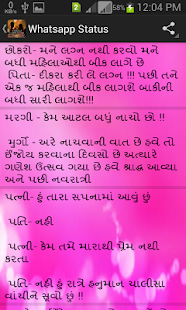 12:04 PM
Whatsapp Status
છોકરી- મને લગ્ન નથી કરવો મને
બધી મહિલાઓથી બીક લાગે છે
પિતા- દીકરા કરી લે લગ્ન !!! પછી તને
એક જ મહિલાથી બીક લાગશે બાકીની
બધી સારી લાગશે!!!
મરગી - કેમ આટલ બધુ નાચો છો !!
મુર્ગો - અરે નાચવાની વાત છે હવે તો
ઈંજોય કરવાના દિવસો છે અત્યારે
ગણેશ ઉત્સવ ગયા છે હવે શ્રાદ્ધ આવ્યા
અને પછી નવરાત્રી
પત્ની- હું તારા સપનામાં આવું છું
પતિ- નહી
પત્ની - કેમ તમે મારાથી પ્રેમ નથી
કરતા
પતિ- નહી હું રાત્રે હનુમાન ચાલીસા
વાંચીને સૂવો છું !!